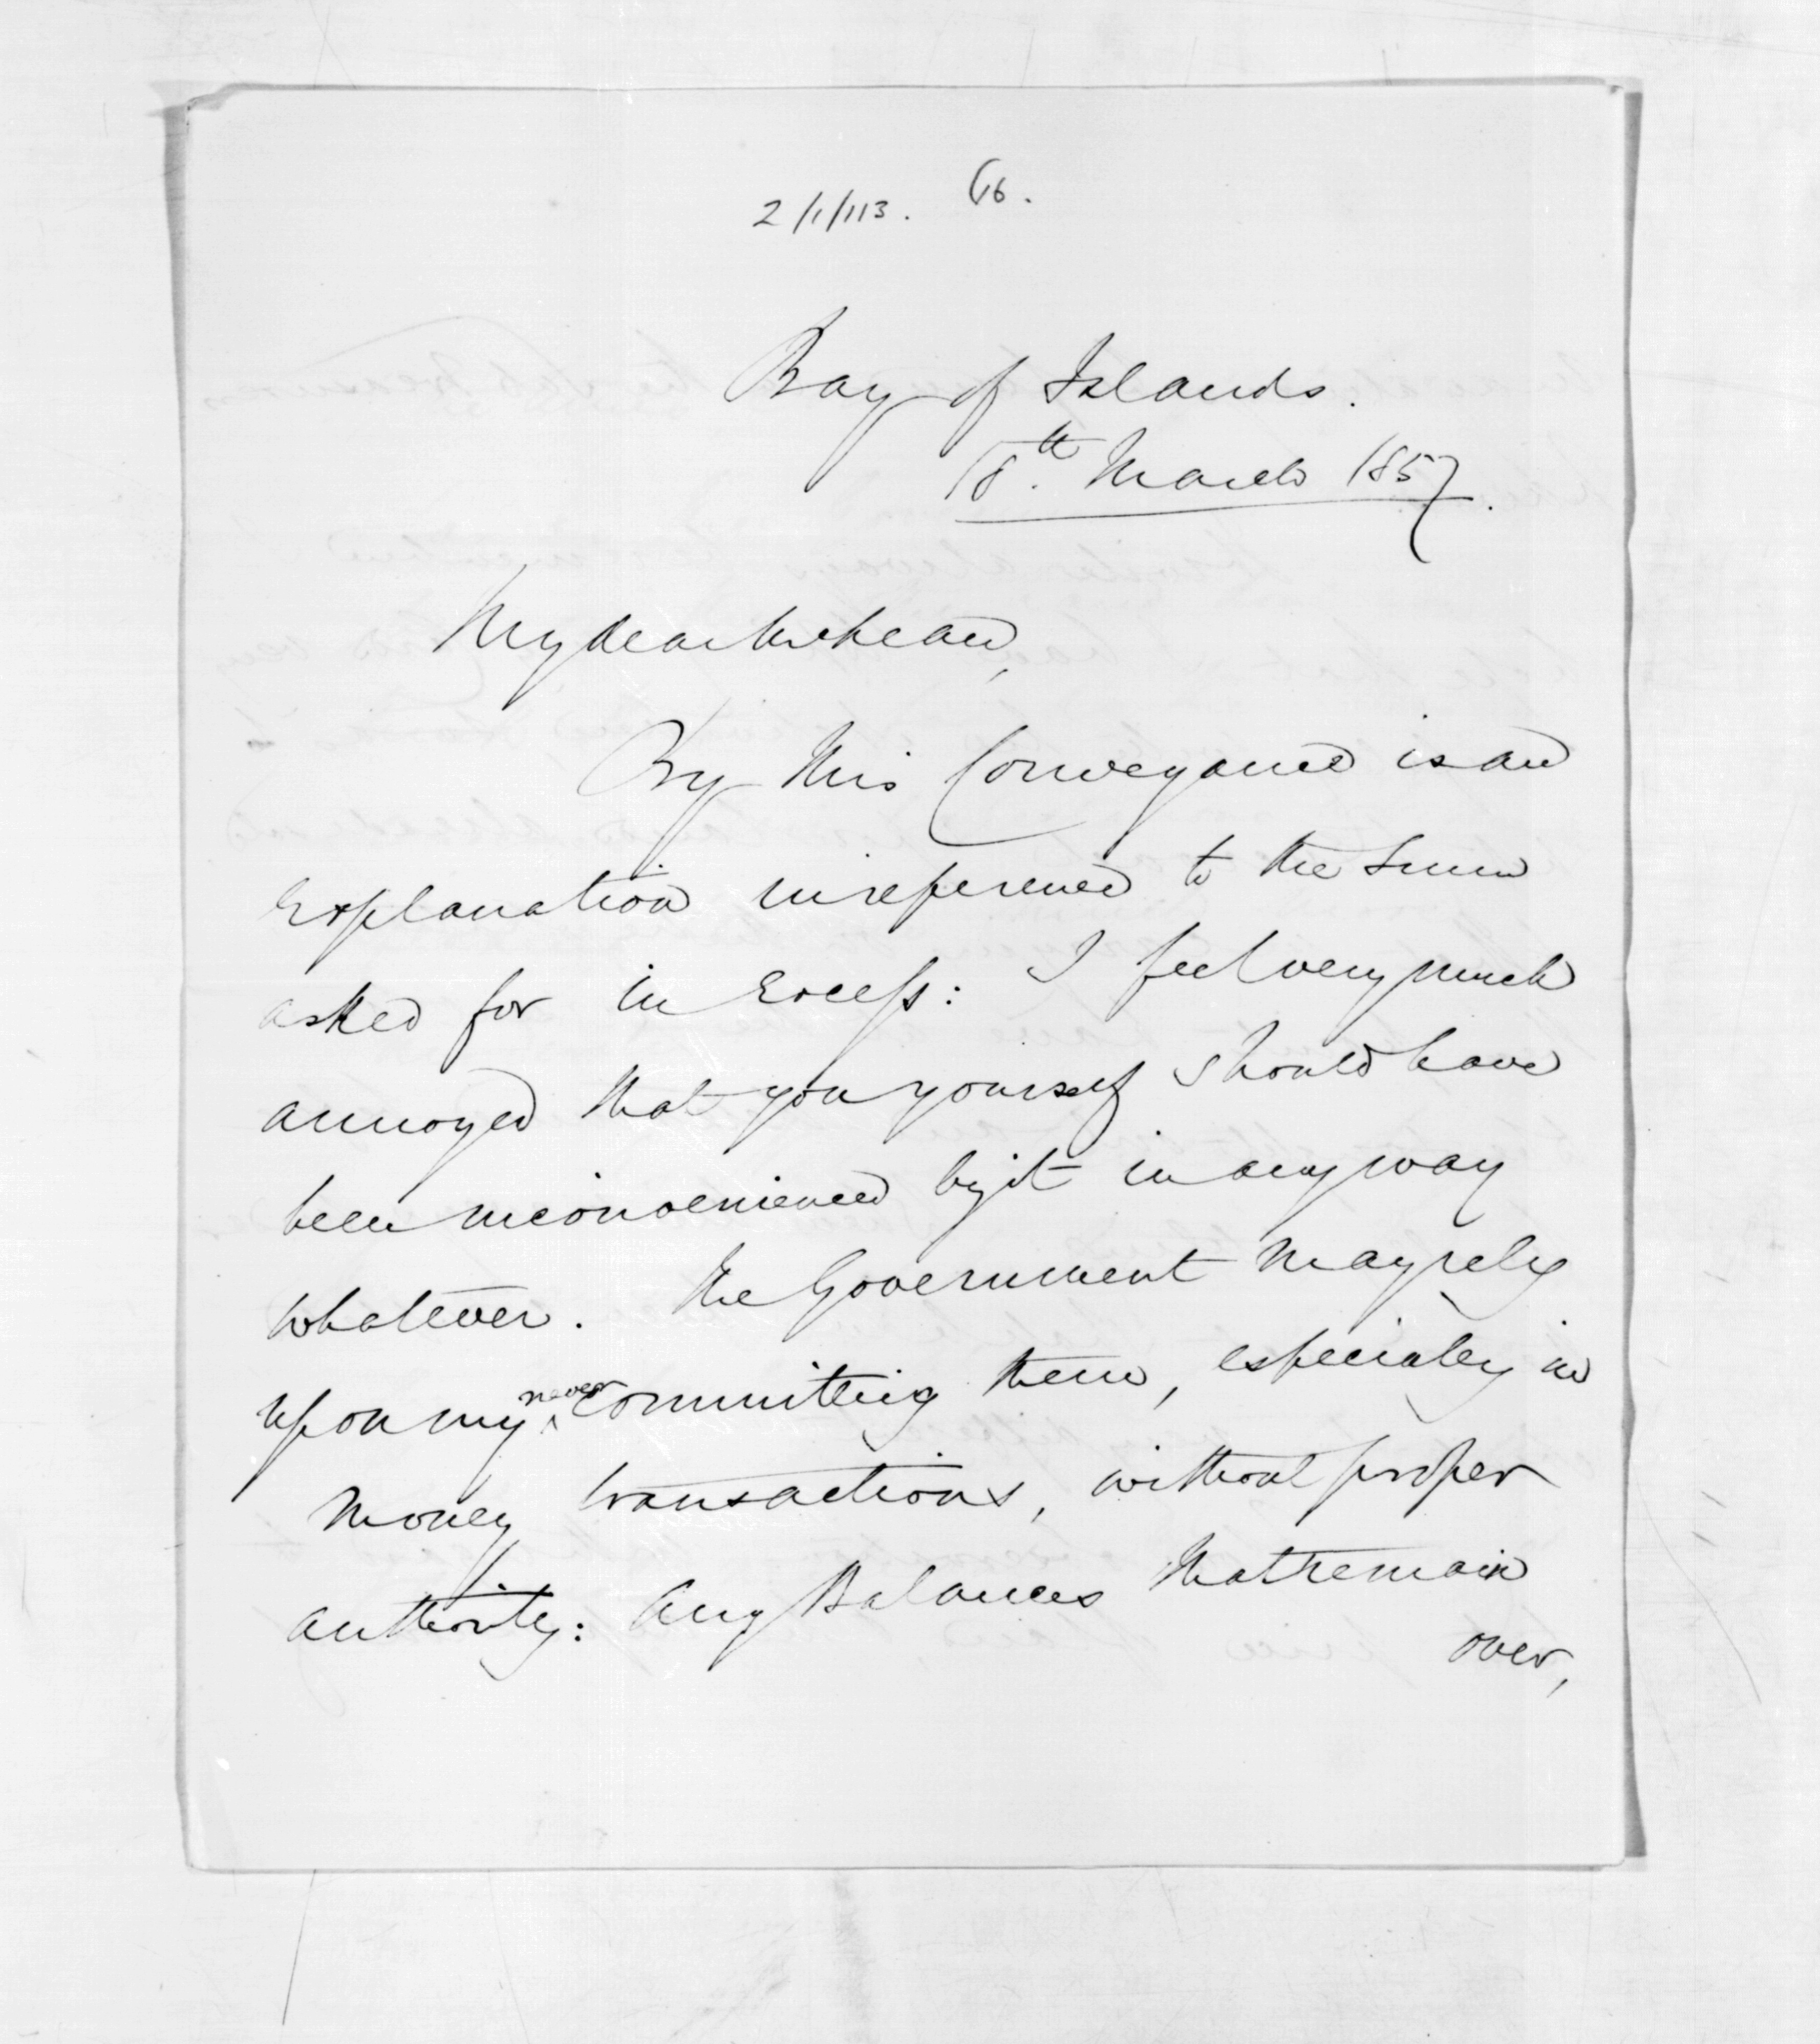 2/1/113. 66.
Bay of Islands.
18th. March 1857.
My dear McLean,
By this Conveyance is an
explanation in reference to the Sum
asked for in Excess: I feel very much
annoyed that you yourself should have
been inconvenienced by it in any way
whatever. The Government may rely
upon my never committing them, especially in
money transactions, without proper
authority: Any Balances that remain
over,